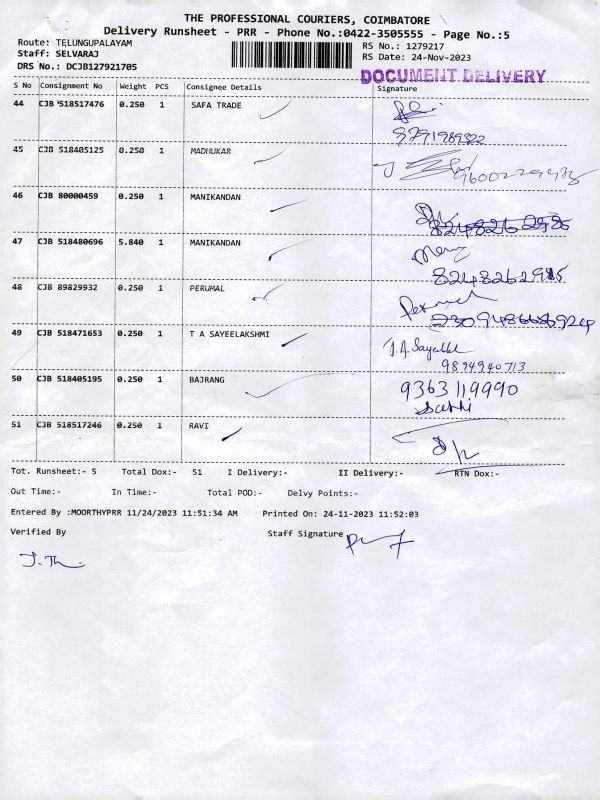 THE PROFESSIONAL COURIERS, COIMBATORE
Delivery Runsheet - PRR - Phone No.:0422-3505555 - Page No.:5
Route: TELUNGUPALAYAM RS No.: 1279217
Staff: SELVARAJ RS Date: 24-Nov-2023
DRS No.: DCJB127921705 DOCUMENT DELIVERY
S No Consignment No Weight PCS Consignee Details Signature
44 CJB 518517476 0.250 1 SAFA TRADE
45 CJB 518405125 0.250 1 MADHUKAR
46 CJB 80000459 0.250 1 MANIKANDAN
47 CJB 518480696 5.840 1 MANIKANDAN
8248262985
48 CJB 89829932 0.250 1 PERUMAL
49 CJB 518471653 0.250 1 T A SAYEELAKSHMI
9894940713
50 CJB 518405195 0.250 1 BAJRANG 9363119990
51 CJB 518517246 0.250 1 RAVI
Tot. Runsheet:- 5 Total Dox:- 51 I Delivery:- II Delivery:- RTN Dox:-
Out Time:- In Time:- Total POD:- Delvy Points:-
Entered By :MOORTHYPRR 11/24/2023 11:51:34 AM Printed On: 24-11-2023 11:52:03
Verified By Staff Signature